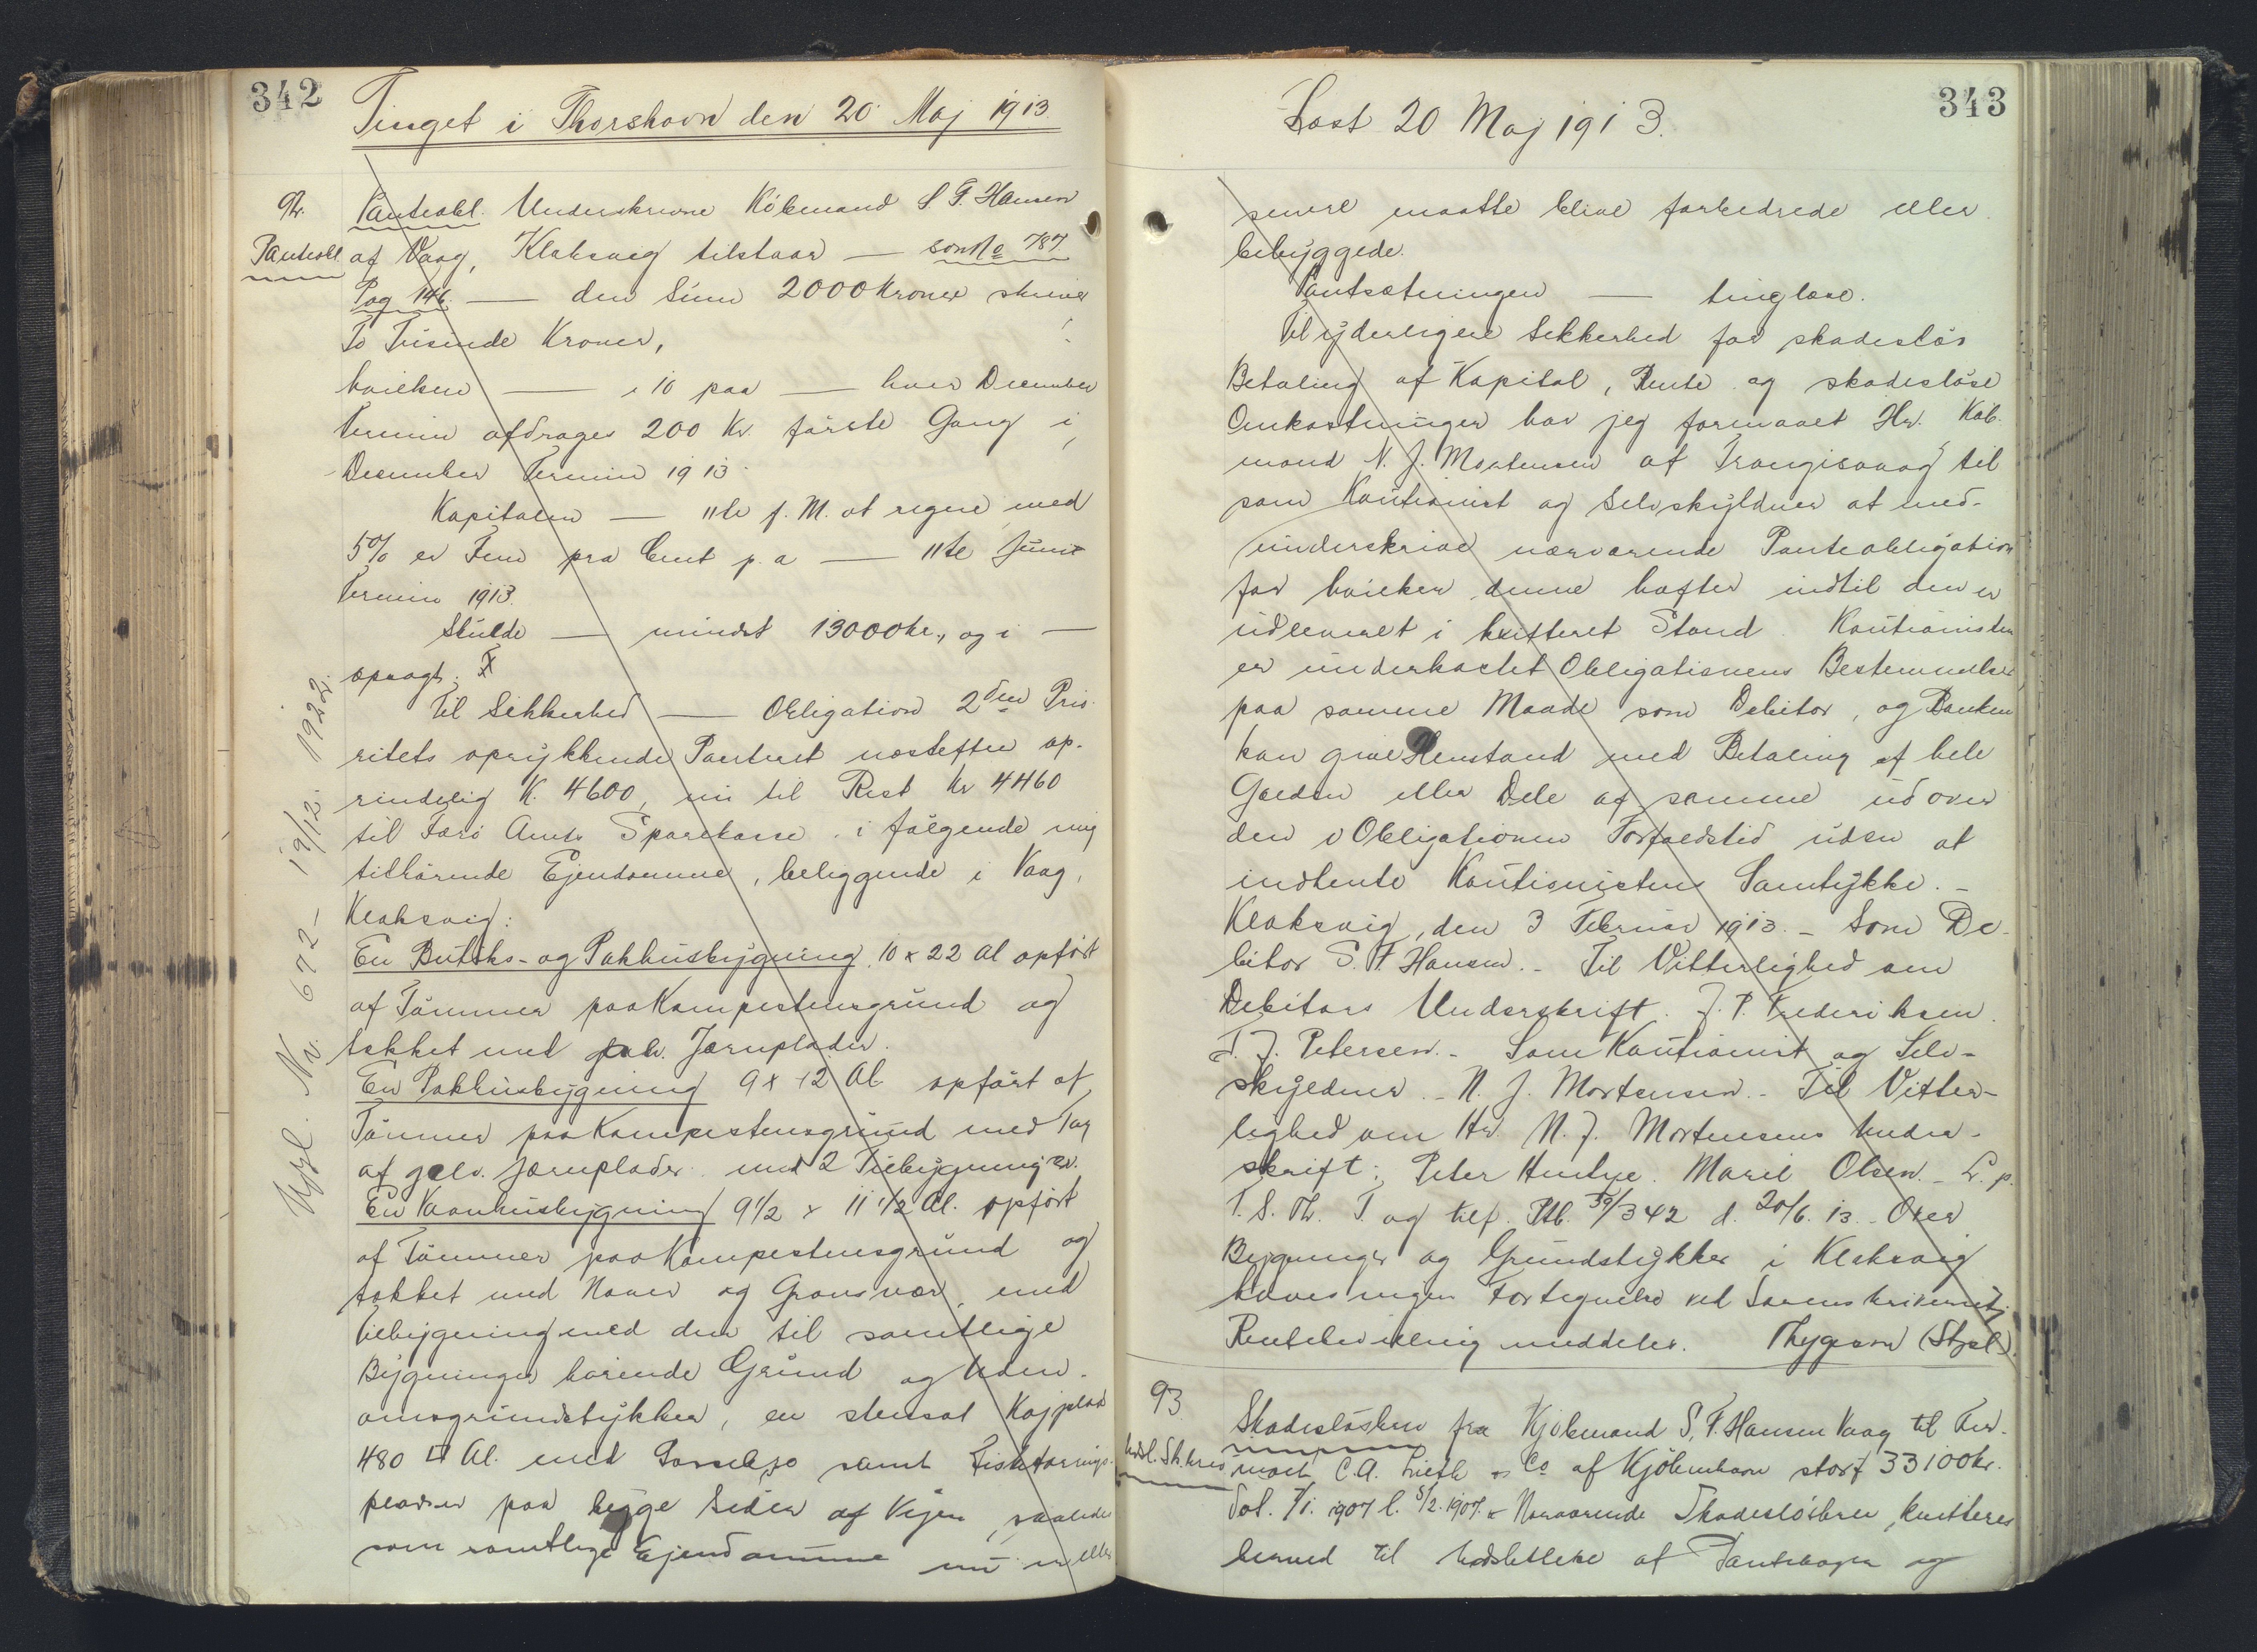 342
Tinget i Thorshavn den 20 Maj 1913.
92.
Panteobl.
Panteobl. Underskrevne Købmand S. F. Hansen
af Vaag, Klaksvig tilstaar — som No 787
Pag 146 — den Sum 2000 Kroner skriver
To Tusinde Kroner,
hvilken — i 10 paa — hver December
Termin afdrages 200 Kr. første Gang i
December Termin 1913.
Kapitalen — 11te f. M. at regne med
5% er Fem pro Cent p. a — 11te Juni
Termin 1913.
Skulde — mindst 13000 kr., og i —
opsagt. F
Til Sikkerhed — Obligation 2den Prio-
ritets oprykkende Panteret næstefter op-
rindelig K. 4600, nu til Rest Kr 4460
til Færø Amts Sparekasse i følgende mig
tilhørende Ejendomme, beliggende i Vaag,
Klaksvig:
En Butiks- og Pakhusbygning 10 x 22 Al opført
af Tømmer paa Kampestensgrund og
tækket med galv. Jærnplader.
En Pakhusbygning 9 x 12 Al. opført af
Tømmer paa Kampestensgrund med Tag
af galv. Jærnplader med 2 Tilbygninger.
En Vaanhusbygning 9 1/2 x 11 1/2 Al. opført
af Tømmer paa Kampestensgrund og
tækket med Næver og Grønsvær, med
Tilbygning med den til samtlige
Bygninger hørende Grund og Uden-
omsgrundstykker, en stensat Kajplads
480 □ Al. med samt Fisketørrings-
pladser paa begge Sider af Vejen, saaledes
som samtlige Ejendomme nu er eller
Udsl. No. 672 - 19/12. 1922.
343
Læst 20 Maj 1913.
senere maatte blive forbedrede eller
bebyggede.
Pantsætningen — tinglæse.
Til yderligere Sikkerhed for skadesløs
Betaling af Kapital, Rente og skadesløse
Omkostninger har jeg formaaet Hr. Køb-
mand N. J. Mortensen af Trangisvaag til
som Kautionist og Selvskyldner at med-
underskrive nærværende Panteobligation
for hvilken denne hæfter indtil den er
udleveret i kvitteret Stand. Kautionisten
er underkastet Obligationens Bestemmelser
paa samme Maade som Debitor, og Banken
kan give Henstand med Betaling af hele
Gælden eller Dele af samme ud over
den i Obligationen Forfaldstid uden at
indhente Kautionistens Samtykke. -
Klaksvig, den 3 Februar 1913. - Som De-
bitor S. F. Hansen. - Til Vitterlighed om
Debitors Underskrift. J. P. Frederiksen.
J. J. Petersen. - Som Kautionist og Selv-
skyldner. - N. J. Mortensen. - Til Vitter-
lighed om Hr. N. J. Mortensens Under-
skrift: Peter Marie Olsen. - L. p.
T. S. Th. T. og tilf. Ptb. /342 d. 20/6. 13. - Over
Bygninger og Grundstykker i Klaksvig
haves ingen Fortegnelse ved Sorenskriveriet,
meddeles. Thygesen (Stpl).
93.
Udsl. Sk.brev
Skadesløsbrev fra Kjøbmand S. F. Hansen Vaag til Fir-
maet C. A. & Co af Kjøbenhavn stort 33100 kr.
dat. 7/1. 1907 l. 5/2. 1907. Nærværende Skadesløsbrev kvitteres
herved til Udslettelse af Pantebogen og